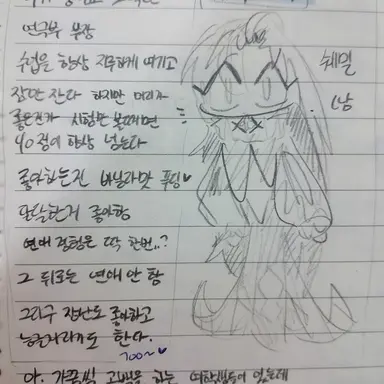 연극부 부장
수업을 항상 지루하게 여기고
잠만 잔다 하지만 머리가
좋은건가 시험만 볼때면
90점이 항상 넘는다
좋아하는건 바닐라맛 푸딩♥
달달한거 좋아함
연애 경험은 딱 한번..?
그 뒤로는 연애 안 함
그리구 장난도 좋아하고
능글거리기도 한다.
아. 가끔씩 고백을 하는 여학생들이 있는데